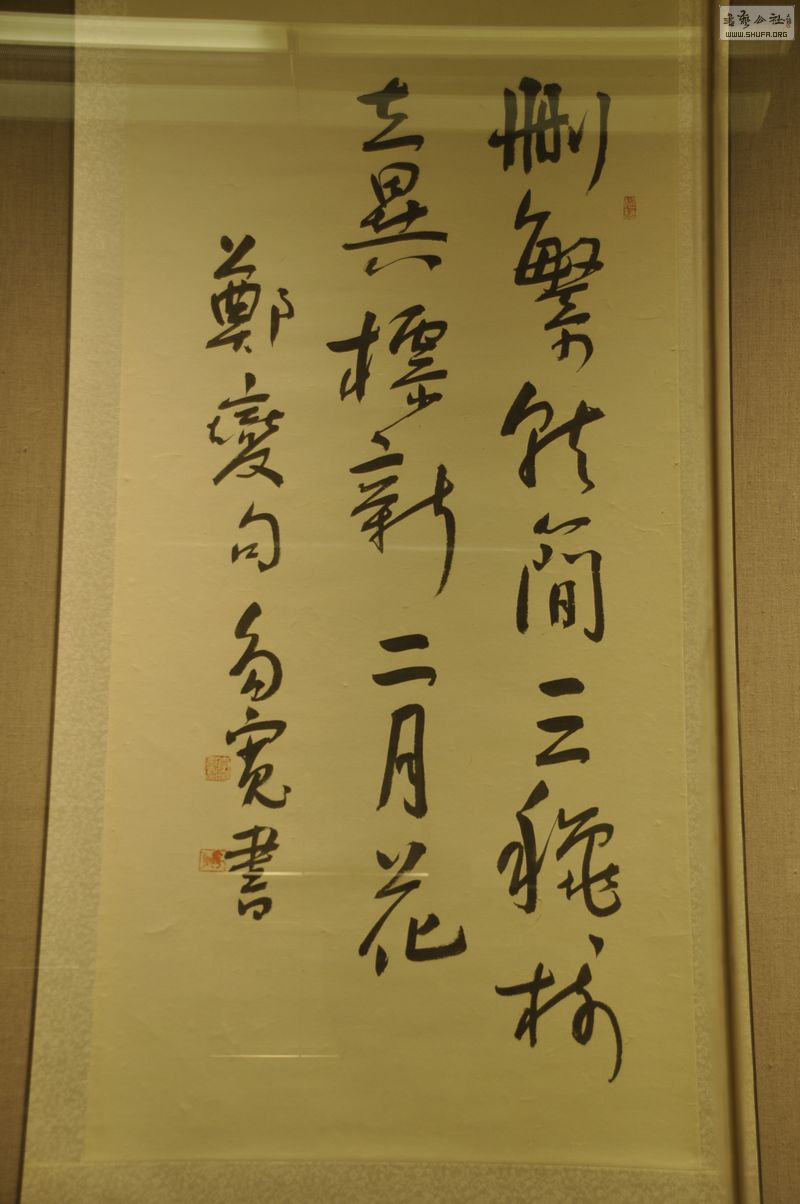 刪繁就簡三龝樹
立異標新二月花
鄭燮句 寬書
書藝公社
WWW.SHUFA.ORG